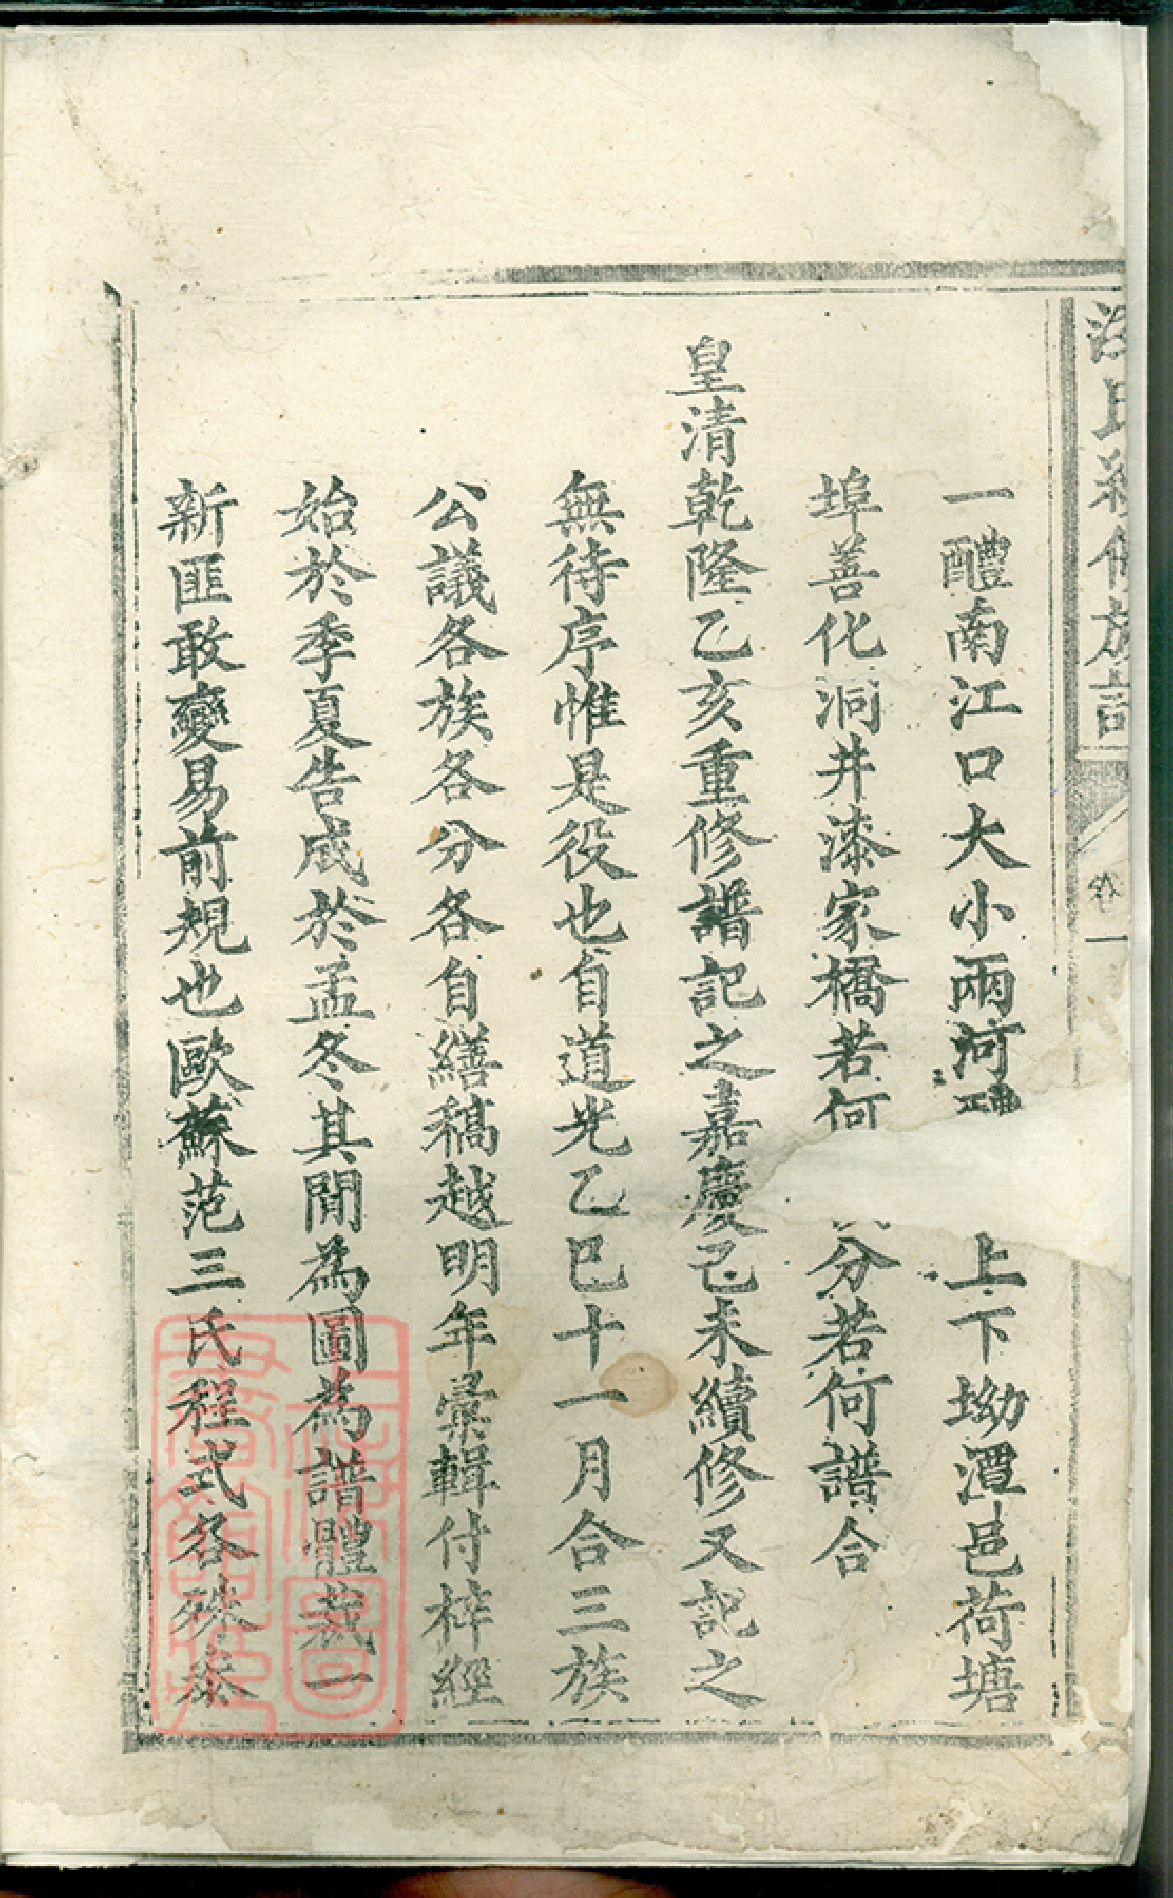 氏續修族譜
卷一
一醴南江口大小兩河醴上下坳潭邑荷塘
埠善化洞井漆家橋若何分若何譜合
皇清乾隆乙亥重修譜記之嘉慶己未續修又記之
無待序惟是役也自道光乙巳十一月合三族
公議各族各分各自繕稿越明年彙輯付梓經
始於季夏告成於孟冬其間為圖為譜體裁一
新匪敢變易前規也歐蘇范三氏程式各殊泰
上海圖書館藏